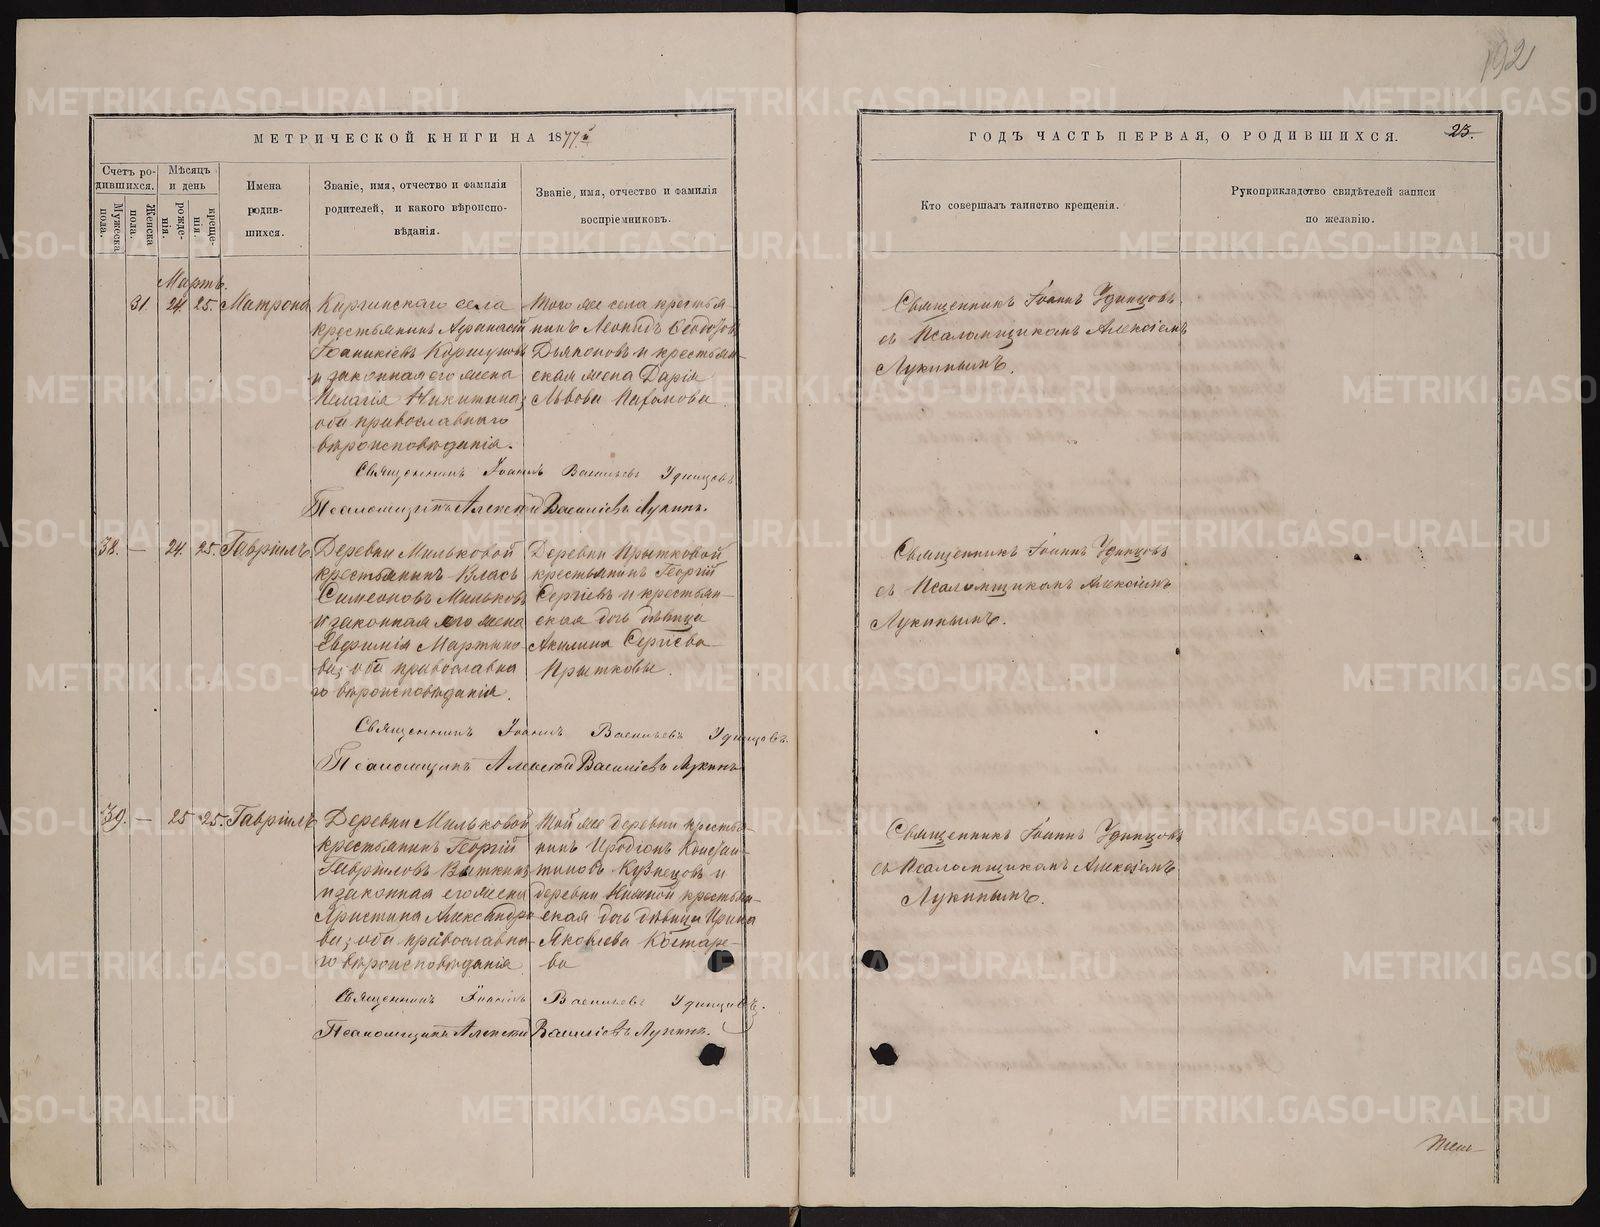 192
МЕТРИЧЕСКОЙ КНИГИ НА 1877й
ГОДЪ ЧАСТЬ ПЕРВАЯ, О РОДИВШИХСЯ. 23.
Счетъ родившихся.
Мужеска пола.
Женска пола.
Мѣсяцъ и день
рожденія.
крещенія.
Имена родившихся.
Званіе, имя, отчество и фамилія родителей, и какого вѣроисповѣданія.
Званіе, имя, отчество и фамилія воспріемниковъ.
Кто совершалъ таинство крещенія.
Рукоприкладство свидѣтелей записи по желанію.
Мартъ.
31. 24. 25. Матрона
Киргинскаго села
крестьянинъ Аѳанасій
Іоанникіевъ Коршуновъ
и законная его жена
Пелагія Никитина;
оба православнаго
вѣроисповѣданія.
Того же села крестья-
нинъ Леонидъ Ѳеодоров
Дьяконовъ и крестьян-
ская жена Дарія
Львова Пахомова.
Священникъ Іоаннъ Удинцовъ
съ Псаломщикомъ Алексіемъ
Лукинымъ.
Священникъ Іоаннъ Васильевъ Удинцовъ
Псаломщикъ Алексѣй Василіевъ Лукинъ.
38. — 24. 25. Гавріилъ
Деревни Мильковой
крестьянинъ Власъ
Симеоновъ Мильковъ
и законная его жена
Евфимія Мартино-
ва; оба православна
го вѣроисповѣданія.
Деревни Прытковой
крестьянинъ Георгій
Сергіевъ и крестьян-
ская дочь дѣвица
Акилина Сергіева
Прытковы.
Священникъ Іоаннъ Удинцовъ
съ Псаломщикомъ Алексіемъ
Лукинымъ.
Священникъ Іоаннъ Васильевъ Удинцовъ.
Псаломщикъ Алексѣй Василіевъ Лукинъ
39. — 25 25. Гавріилъ
Деревни Мильковой
крестьянинъ Георгій
Гавріиловъ Вяткинъ
и законная его жена
Христина Александро
ва; оба православна-
го вѣроисповѣданія
Той же деревни крестья-
нинъ Иродіонъ Констан-
тиновъ Кузнецовъ и
деревни Нижной крестьян-
ская дочь дѣвица Ирина
Яковлева Костаре-
ва
Священникъ Іоаннъ Удинцовъ
съ Псаломщикомъ Алексіемъ
Лукинымъ.
Священникъ Іоаннъ Васильевъ Удинцовъ.
Псаломщикъ Алексѣй Василіевъ Лукинъ.
METRIKI.GASO-URAL.RU